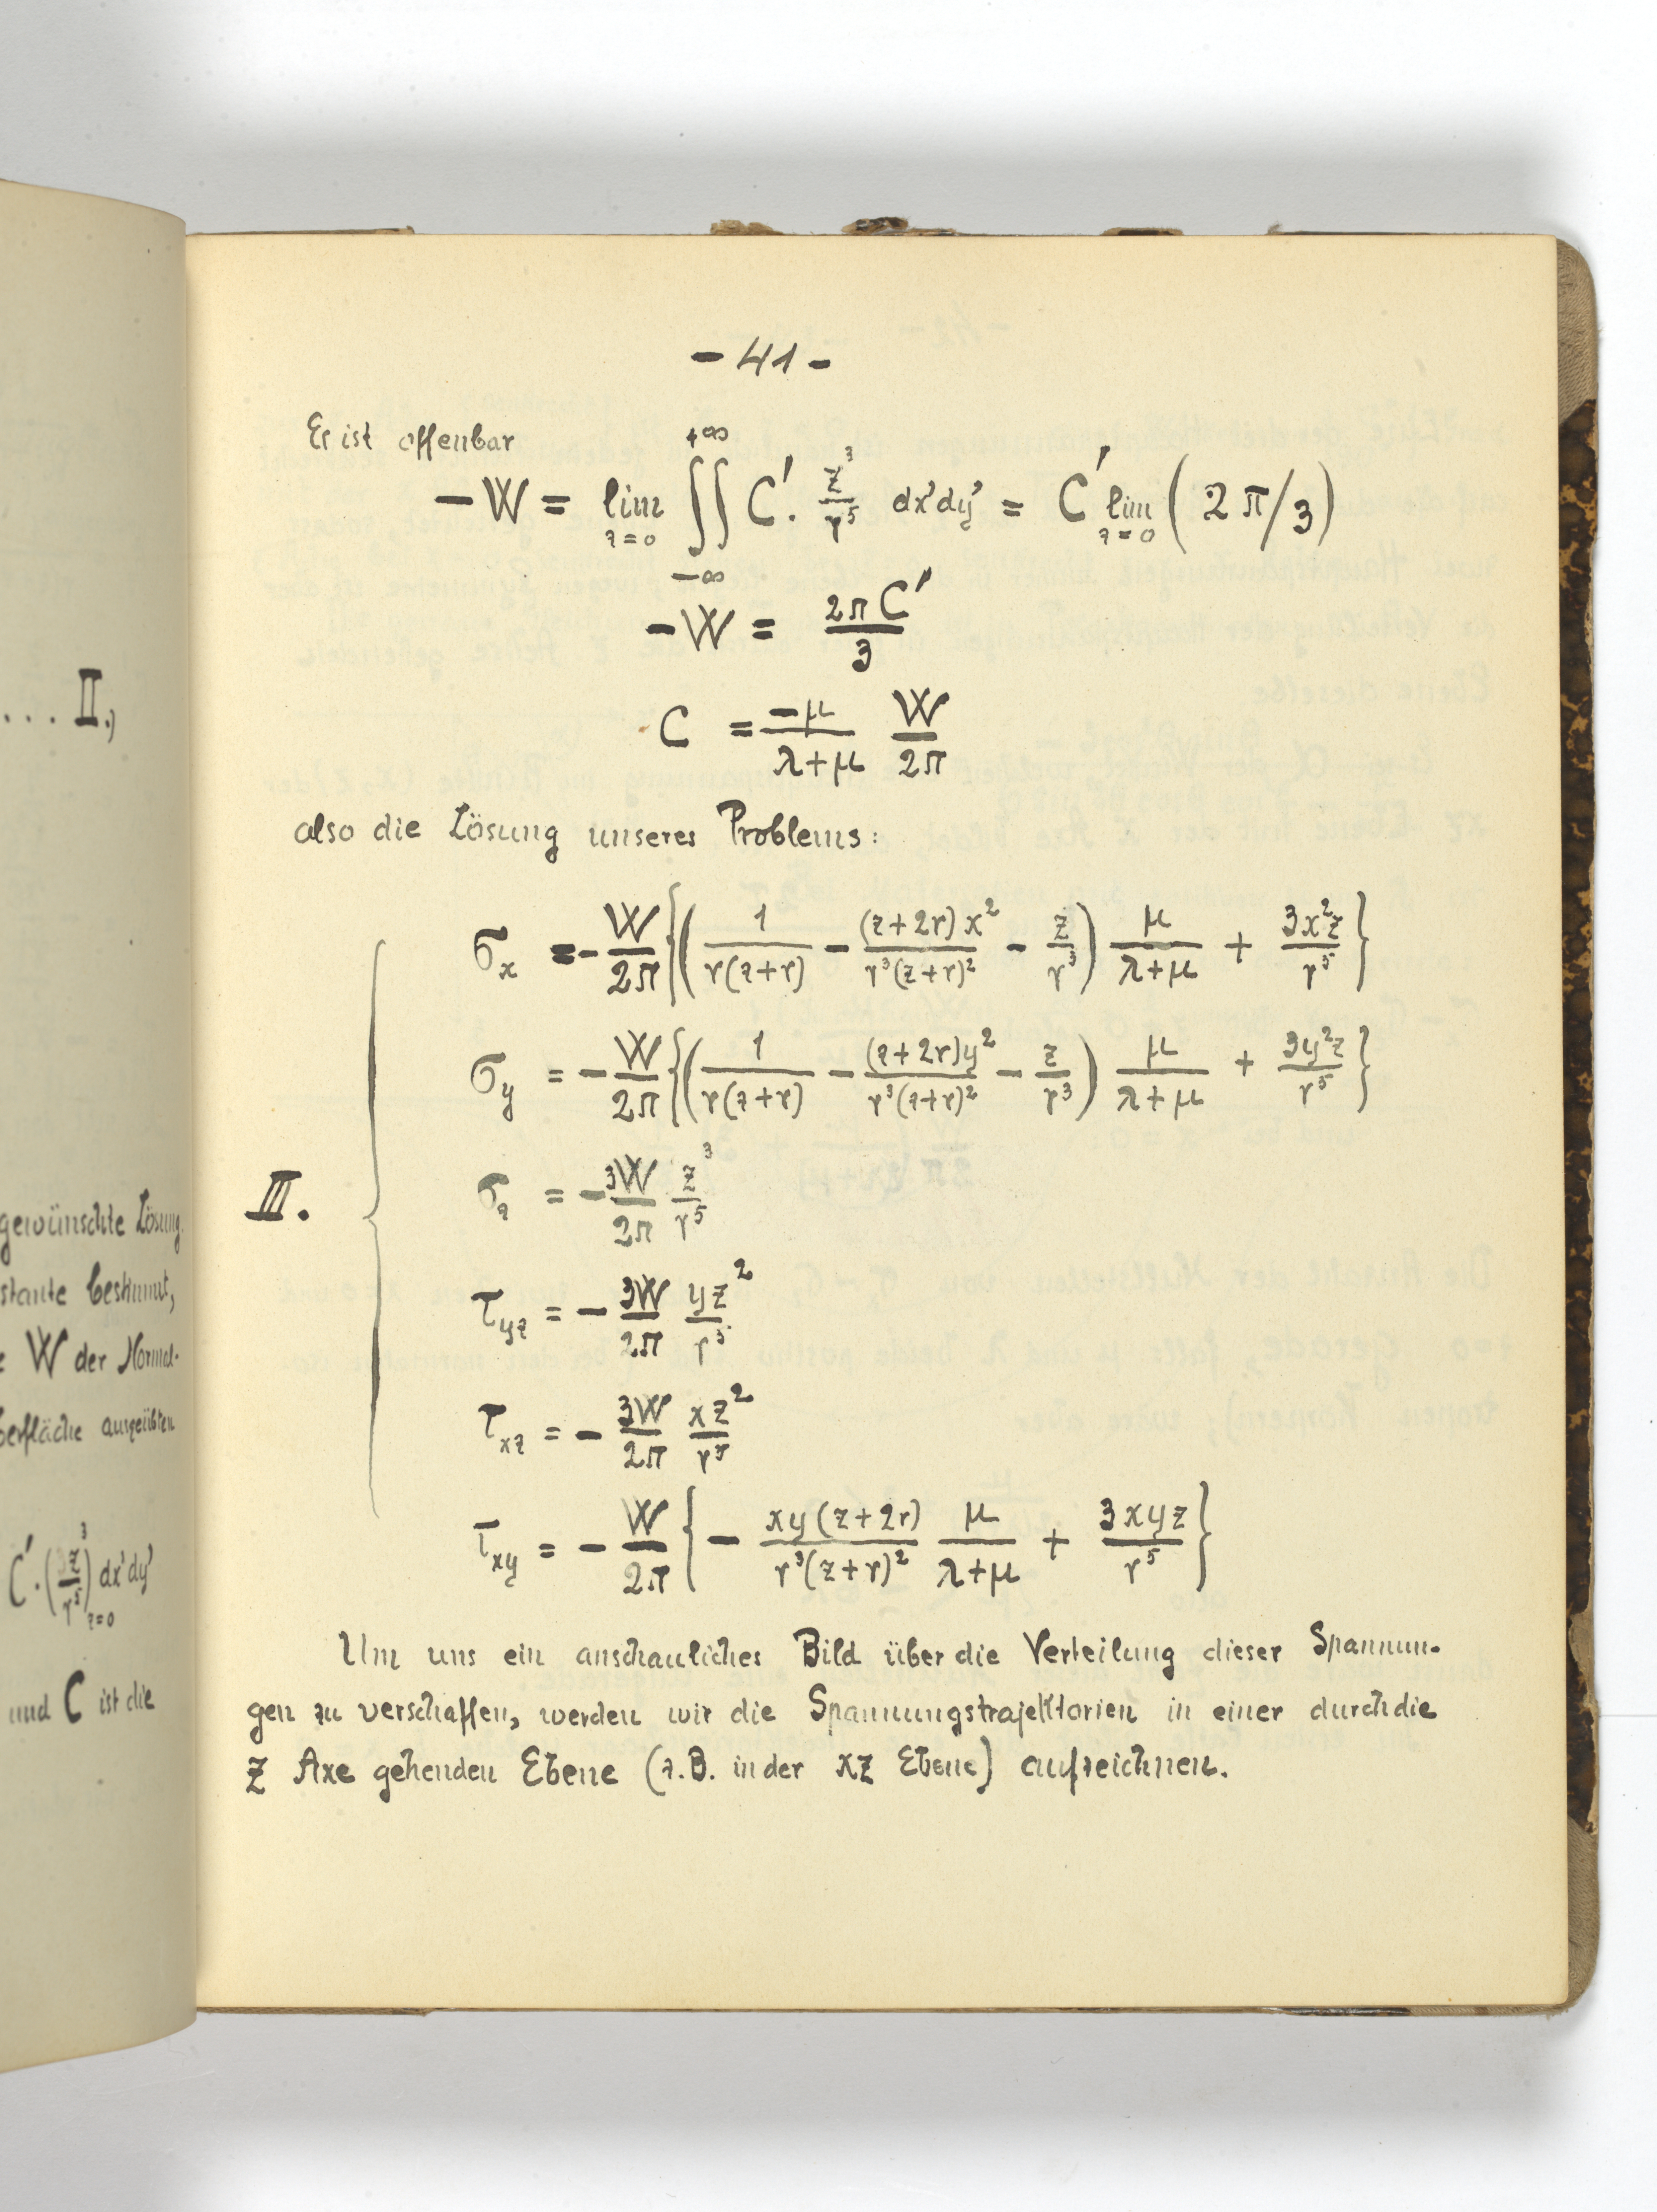 ... II.,
gewünschte Lösung.
stante bestimmt,
W der Normal-
berfläche ausgeübten
C'·(z³/r⁵)_{z=0} dx'dy'
und C ist die
- 41 -
Es ist offenbar
-W = lim_{z=0} ∫∫_{-∞}^{+∞} C'. z³/r⁵ dx'dy' = C' lim_{z=0} (2π/3)
-W = 2πC'/3
C = -μ/(λ+μ) W/2π
also die Lösung unseres Problems:
σ_x = - W/2π {(1/(r(z+r)) - (z+2r)x²/(r³(z+r)²) - z/r³) μ/(λ+μ) + 3x²z/r⁵}
σ_y = - W/2π {(1/(r(z+r)) - (z+2r)y²/(r³(z+r)²) - z/r³) μ/(λ+μ) + 3y²z/r⁵}
III.
σ_z = - 3W/2π z³/r⁵
τ_yz = - 3W/2π yz²/r⁵
τ_xz = - 3W/2π xz²/r⁵
τ_xy = - W/2π {- xy(z+2r)/(r³(z+r)²) μ/(λ+μ) + 3xyz/r⁵}
Um uns ein anschauliches Bild über die Verteilung dieser Spannun-
gen zu verschaffen, werden wir die Spannungstrajektorien in einer durch die
Z Axe gehenden Ebene (z.B. in der XZ Ebene) aufzeichnen.